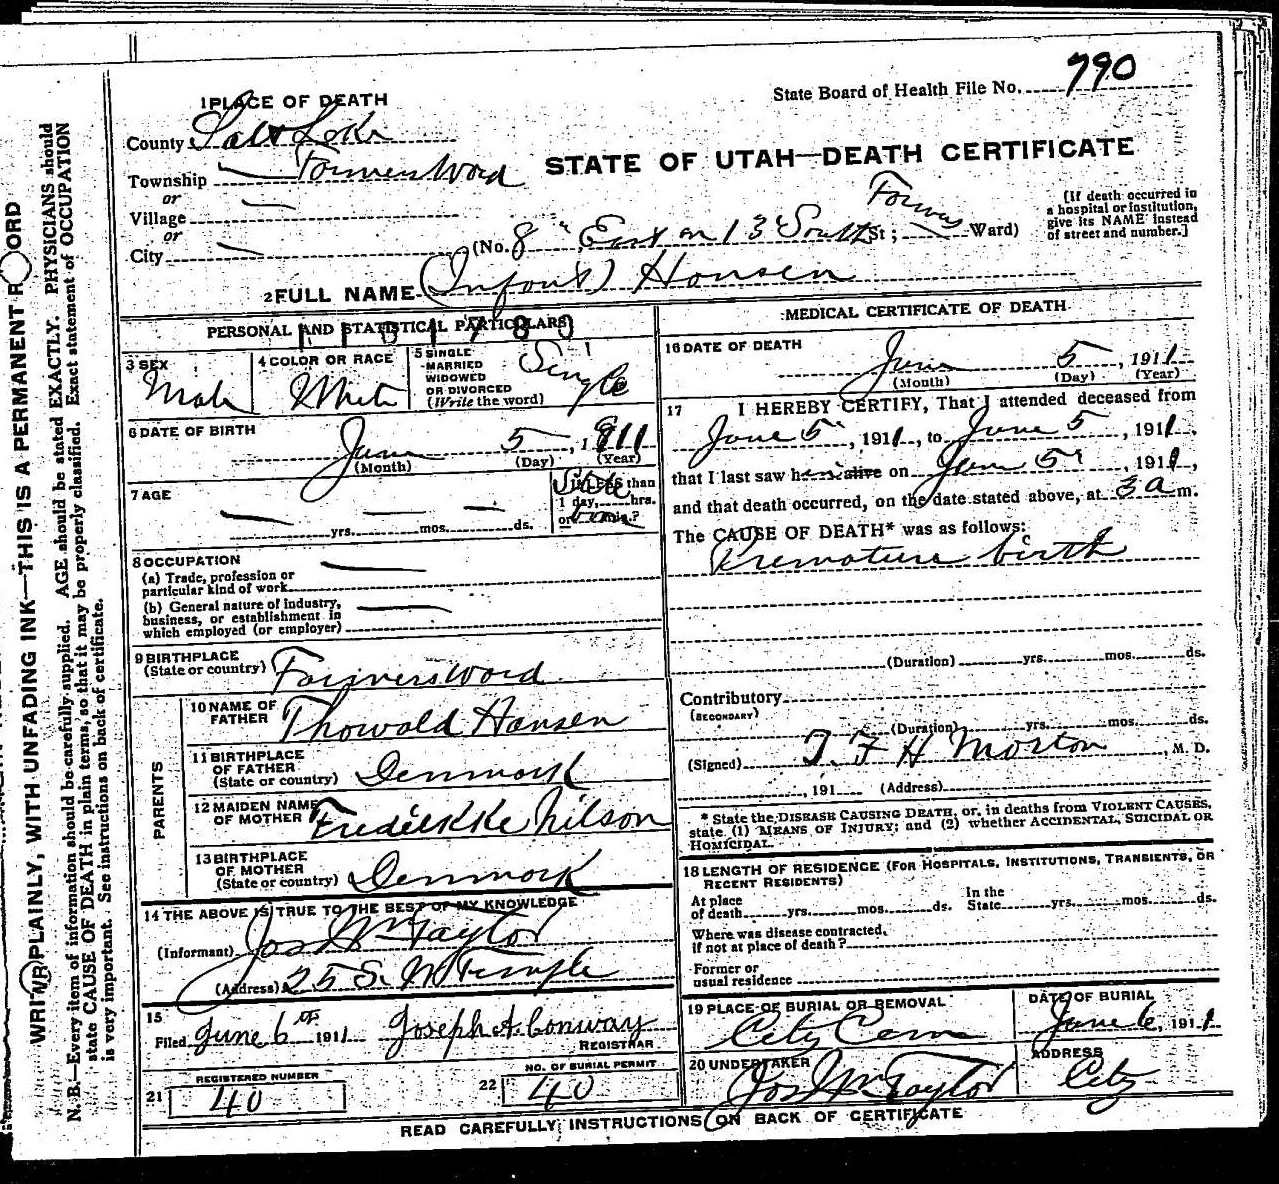 WRITE PLAINLY, WITH UNFADING INK—THIS IS A PERMANENT RECORD
N. B.—Every item of information should be carefully supplied. AGE should be stated EXACTLY. PHYSICIANS should
state CAUSE OF DEATH in plain terms, so that it may be properly classified. Exact statement of OCCUPATION
is very important. See instructions on back of certificate.
State Board of Health File No. 790
1 PLACE OF DEATH
County Salt Lake
STATE OF UTAH—DEATH CERTIFICATE
Township Farmers Ward
or
Village
or
City
(No. 8" East on 13 South St; Farmers Ward)
[If death occurred in
a hospital or institution,
give its NAME instead
of street and number.]
2 FULL NAME (Infant) Hansen
PERSONAL AND STATISTICAL PARTICULARS
3 SEX Male
4 COLOR OR RACE White
5 SINGLE
MARRIED
WIDOWED
OR DIVORCED
(Write the word) Single
6 DATE OF BIRTH June 5, 1911
(Month) (Day) (Year)
7 AGE yrs. mos. ds.
If LESS than
1 day, hrs.
or min.?
8 OCCUPATION
(a) Trade, profession or
particular kind of work
(b) General nature of industry,
business, or establishment in
which employed (or employer)
9 BIRTHPLACE
(State or country) Farmers Ward
PARENTS
10 NAME OF
FATHER Thowald Hansen
11 BIRTHPLACE
OF FATHER
(State or country) Denmark
12 MAIDEN NAME
OF MOTHER Fredekke Nilson
13 BIRTHPLACE
OF MOTHER
(State or country) Denmark
14 THE ABOVE IS TRUE TO THE BEST OF MY KNOWLEDGE
(Informant) Jos Wm Taylor
(Address) 25 S. W Temple
15
Filed June 6th 1911 Joseph A. Conway
REGISTRAR
REGISTERED NUMBER
21 40
NO. OF BURIAL PERMIT
22 40
MEDICAL CERTIFICATE OF DEATH
16 DATE OF DEATH
June 5, 1911
(Month) (Day) (Year)
17 I HEREBY CERTIFY, That I attended deceased from
June 5, 1911, to June 5, 1911,
that I last saw him alive on June 5, 1911,
and that death occurred, on the date stated above, at 3 a m.
The CAUSE OF DEATH* was as follows:
Premature birth
(Duration) yrs. mos. ds.
Contributory
(SECONDARY)
(Duration) yrs. mos. ds.
(Signed) T. F. H Morton, M. D.
, 191 (Address)
* State the DISEASE CAUSING DEATH, or, in deaths from VIOLENT CAUSES,
state (1) MEANS OF INJURY; and (2) whether ACCIDENTAL, SUICIDAL OR
HOMICIDAL.
18 LENGTH OF RESIDENCE (FOR HOSPITALS, INSTITUTIONS, TRANSIENTS, OR
RECENT RESIDENTS)
At place
of death yrs. mos. ds.
In the
State yrs. mos. ds.
Where was disease contracted,
if not at place of death?
Former or
usual residence
19 PLACE OF BURIAL OR REMOVAL
City Cem
DATE OF BURIAL
June 6, 1911
20 UNDERTAKER
Jos Wm Taylor
ADDRESS
City
READ CAREFULLY INSTRUCTIONS ON BACK OF CERTIFICATE